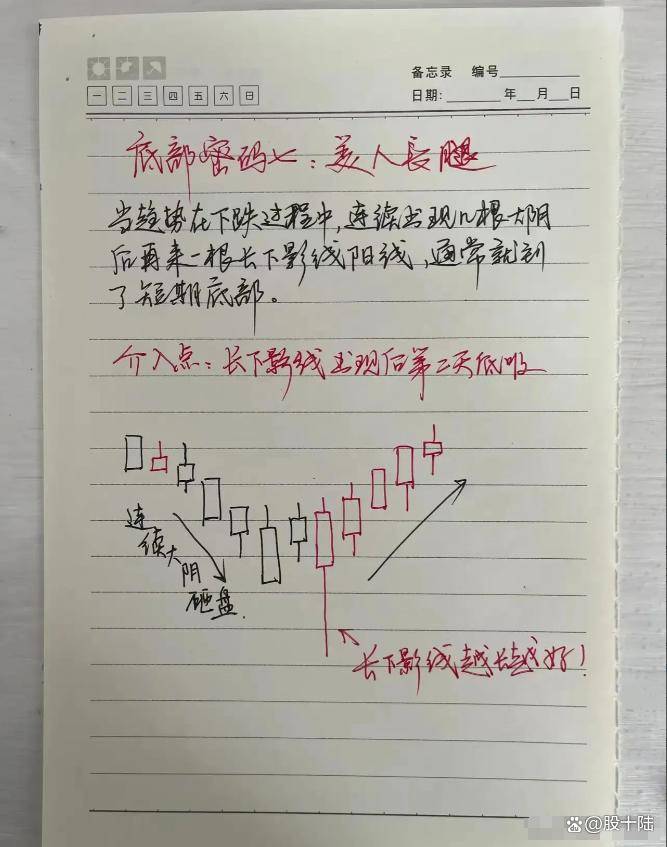 备忘录 编号
一 二 三 四 五 六 日
日期: 年 月 日
底部密码七:美人長腿
当趋势在下跌过程中,连续出现几根大阴
后再来一根长下影线阳线,通常就到
了短期底部。
介入点:长下影线出现后第二天低吸
连续大阴砸盘
长下影线越长越好!
股十陆